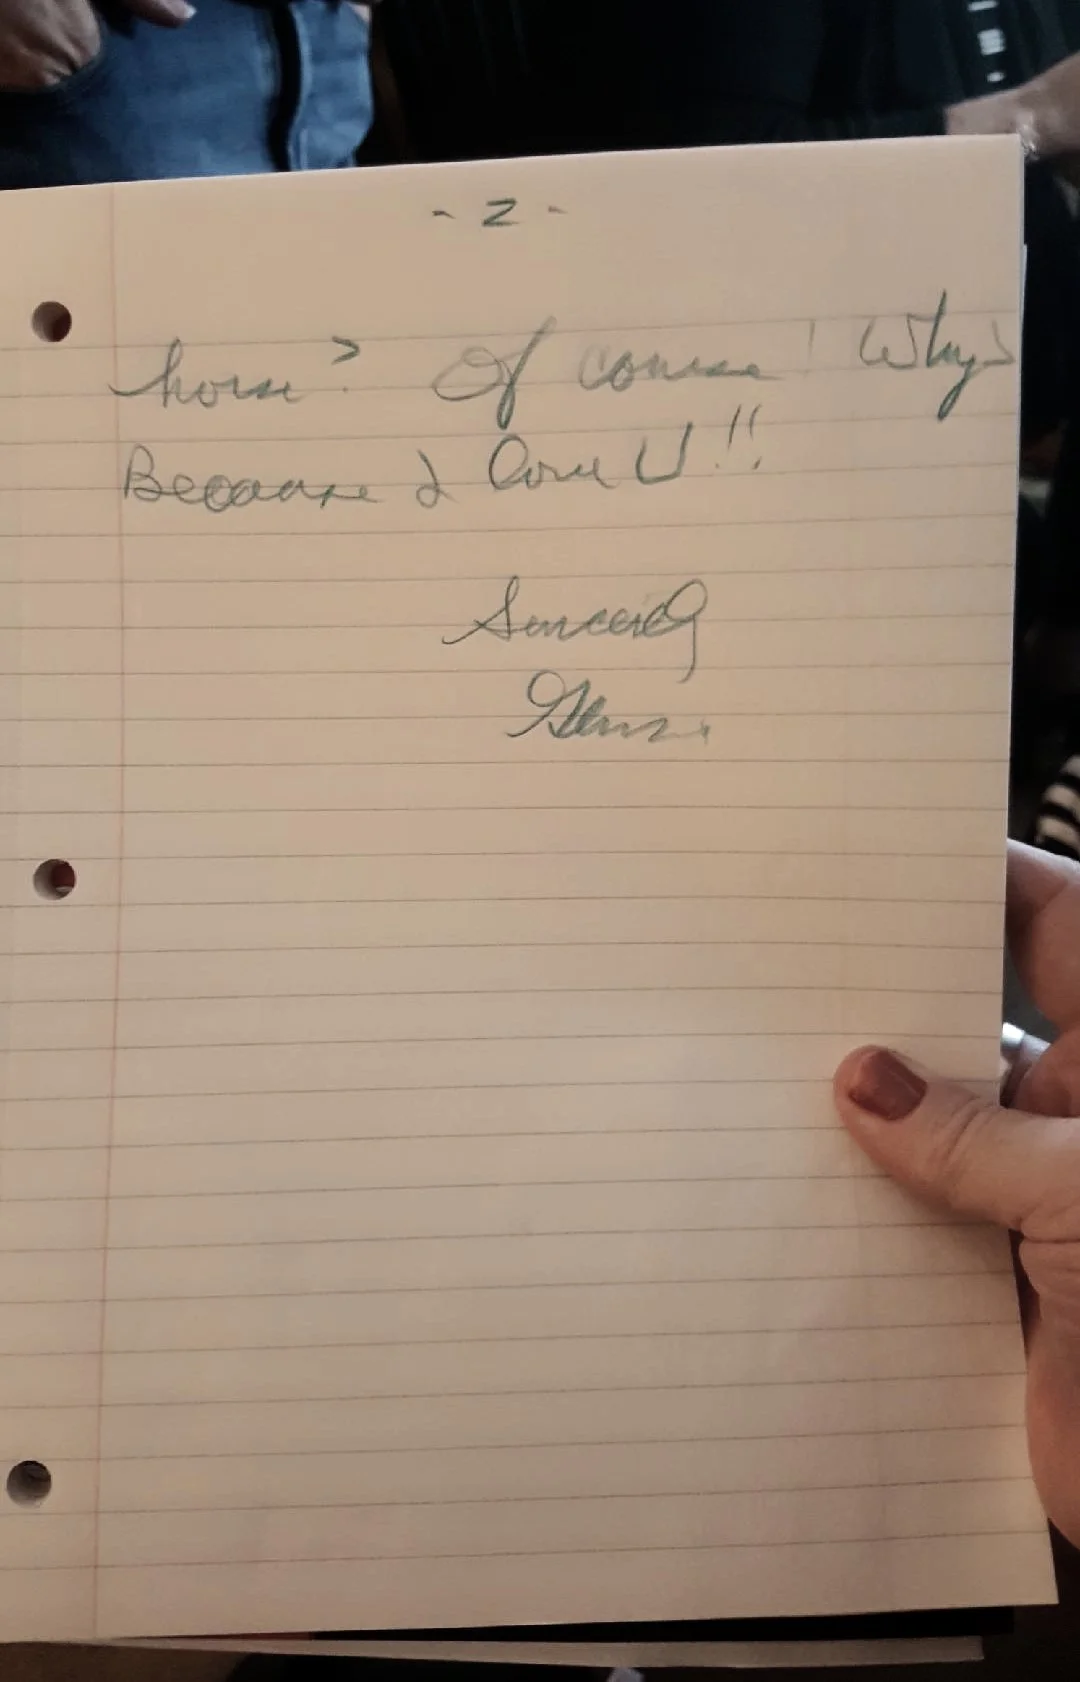 - 2 -
horse? Of course! Why?
Because I love U!!
Sincerely